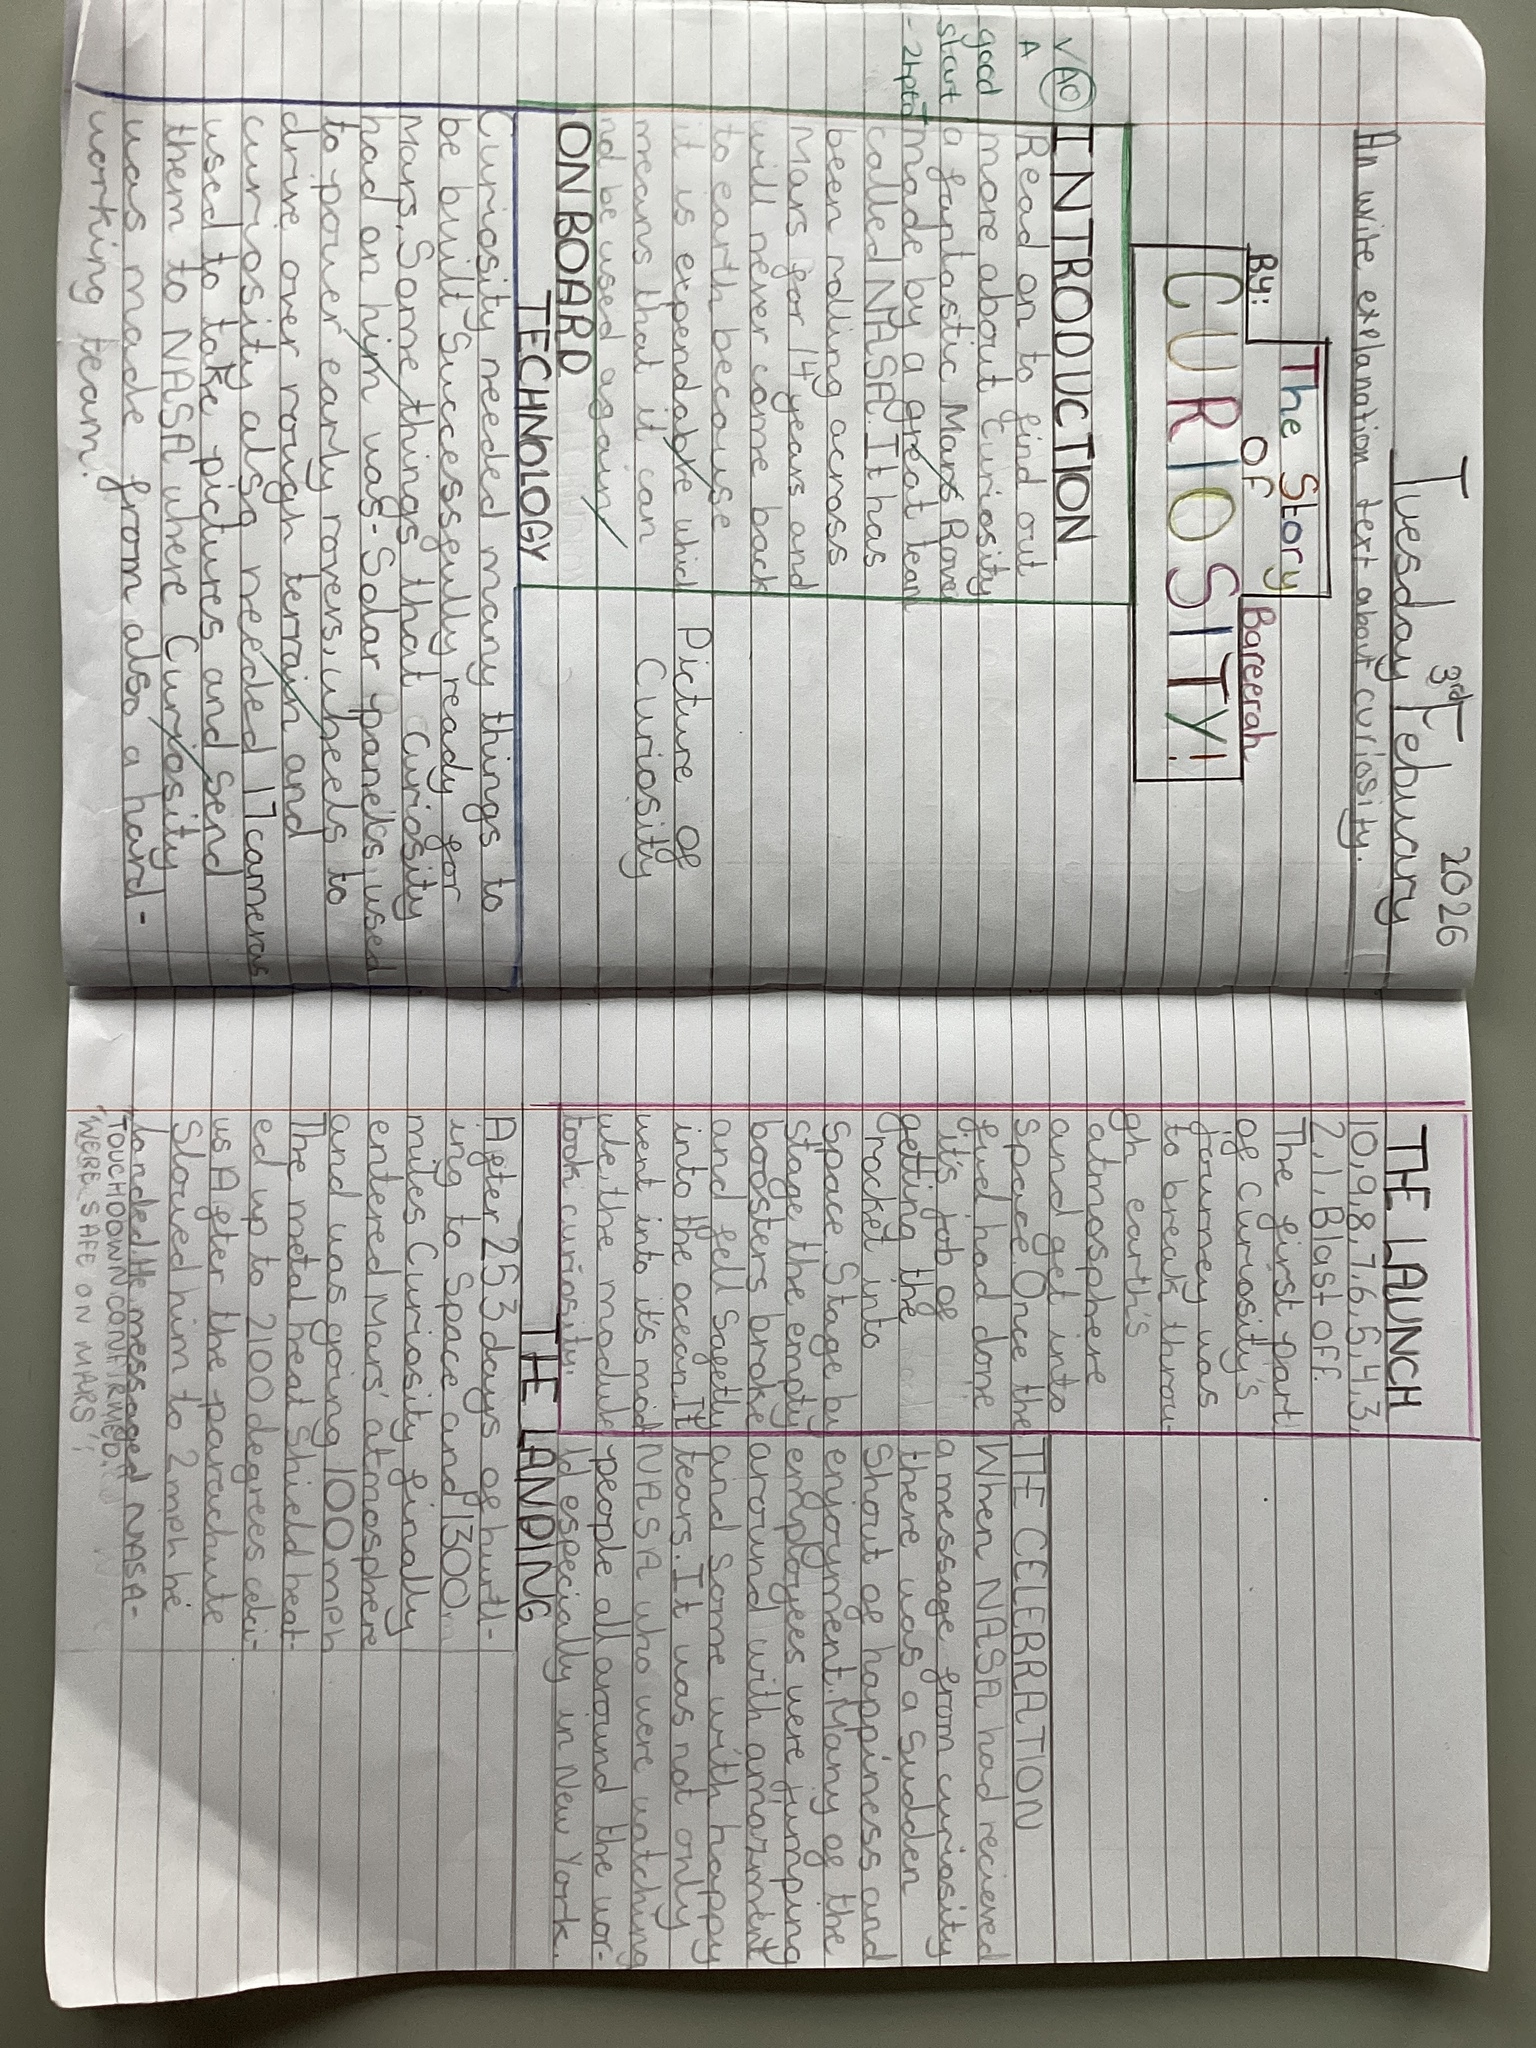 Tuesday 3rd February 2026
An write explanation text about curiosity.
The Story
OF
By: Bareerah
CURIOSITY!
VAO
A
good
start
-2hpts
INTRODUCTION
Read on to find out
more about Curiosity
a fantastic Mars Rover
made by a great team
called NASA. It has
been rolling across
Mars for 14 years and
will never come back
to earth because
it is expendable which
means that it can
nd be used again
Picture of
Curiosity
ON BOARD
TECHNOLOGY
Curiosity needed many things to
be built Successfully ready for
Mars. Some things that Curiosity
had on him was- Solar panels, used
to power early rovers, wheels to
drive over rough terrain and
curiosity also needed 17 cameras
used to take pictures and Send
them to NASA where Curiosity
was made from also a hard-
working team.
THE LAUNCH
10,9,8,7,6,5,4,3,
2,1, Blast off.
The first part
of curiosity's
journey was
to break throu-
gh earth's
atmosphere
and get into
space. Once the
fuel had done
it's job of
getting the
rocket into
Space. Stage by
stage the empty
boosters broke
and fell Safetly
into the ocean. It
went into it's mod
ule, the module
took curiosity.
THE CELEBRATION
When NASA had recieved
a message from curiosity
there was a Sudden
Shout of happiness and
enjoyment. Many of the
employees were jumping
around with amazment
and Some with happy
tears. It was not only
NASA who were watching
people all around the wor-
ld especially in New York.
THE LANDING
After 253 days of hurtl-
ing to Space and 1300m
miles Curiosity finally
entered Mars' atmosphere
and was going 100mph
The metal heat Shield heat-
ed up to 2100 degrees celci-
us After the parachute
Slowed him to 2mph he
landed. He messaged NASA-
"TOUCHDOWN CONFIRMED.
"WERE SAFE ON MARS",